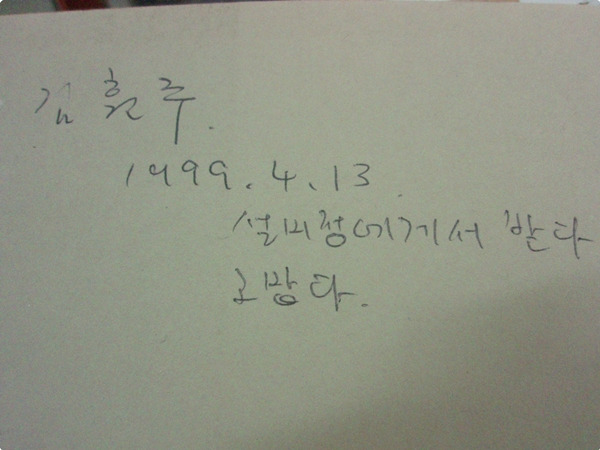 김훤주.
1999. 4. 13.
설미정에게서 받다
고맙다.